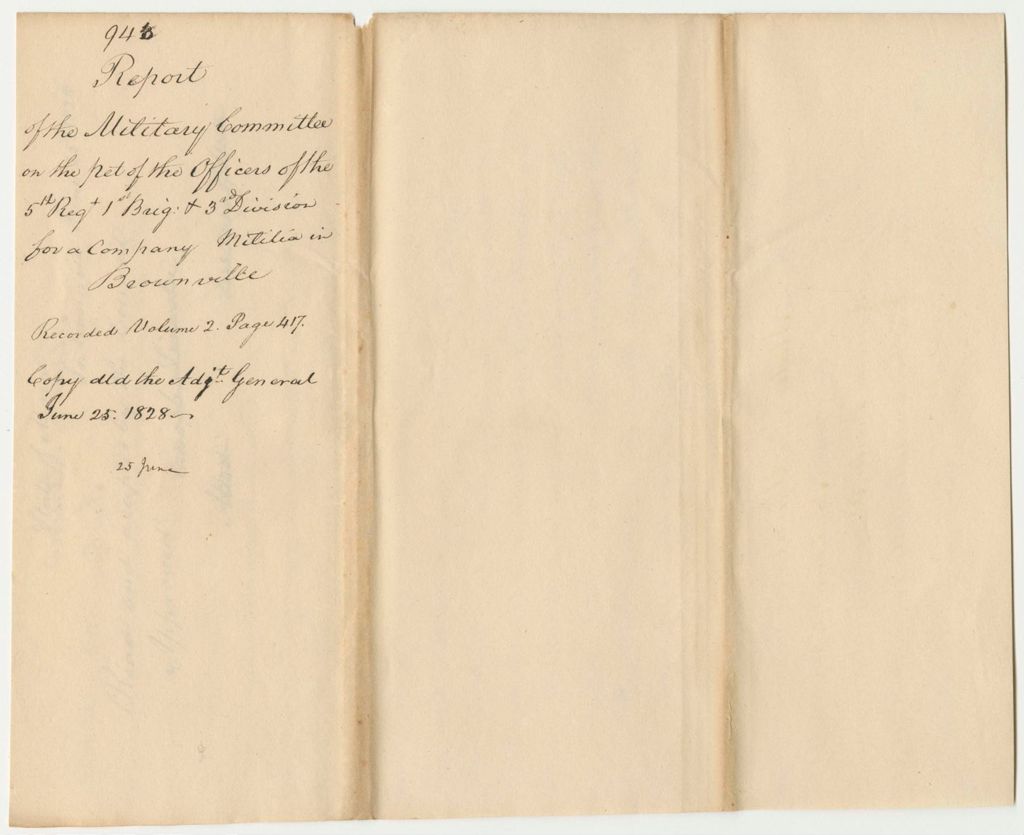 94
Report
of the Military Committee
on the pet of the Officers of the
5th Regt 1st Brig: & 3rd Division
for a Company Militia in
Brownville
Recorded Volume 2. Page 417.
Copy dld the Adjt General
June 25. 1828
25 June